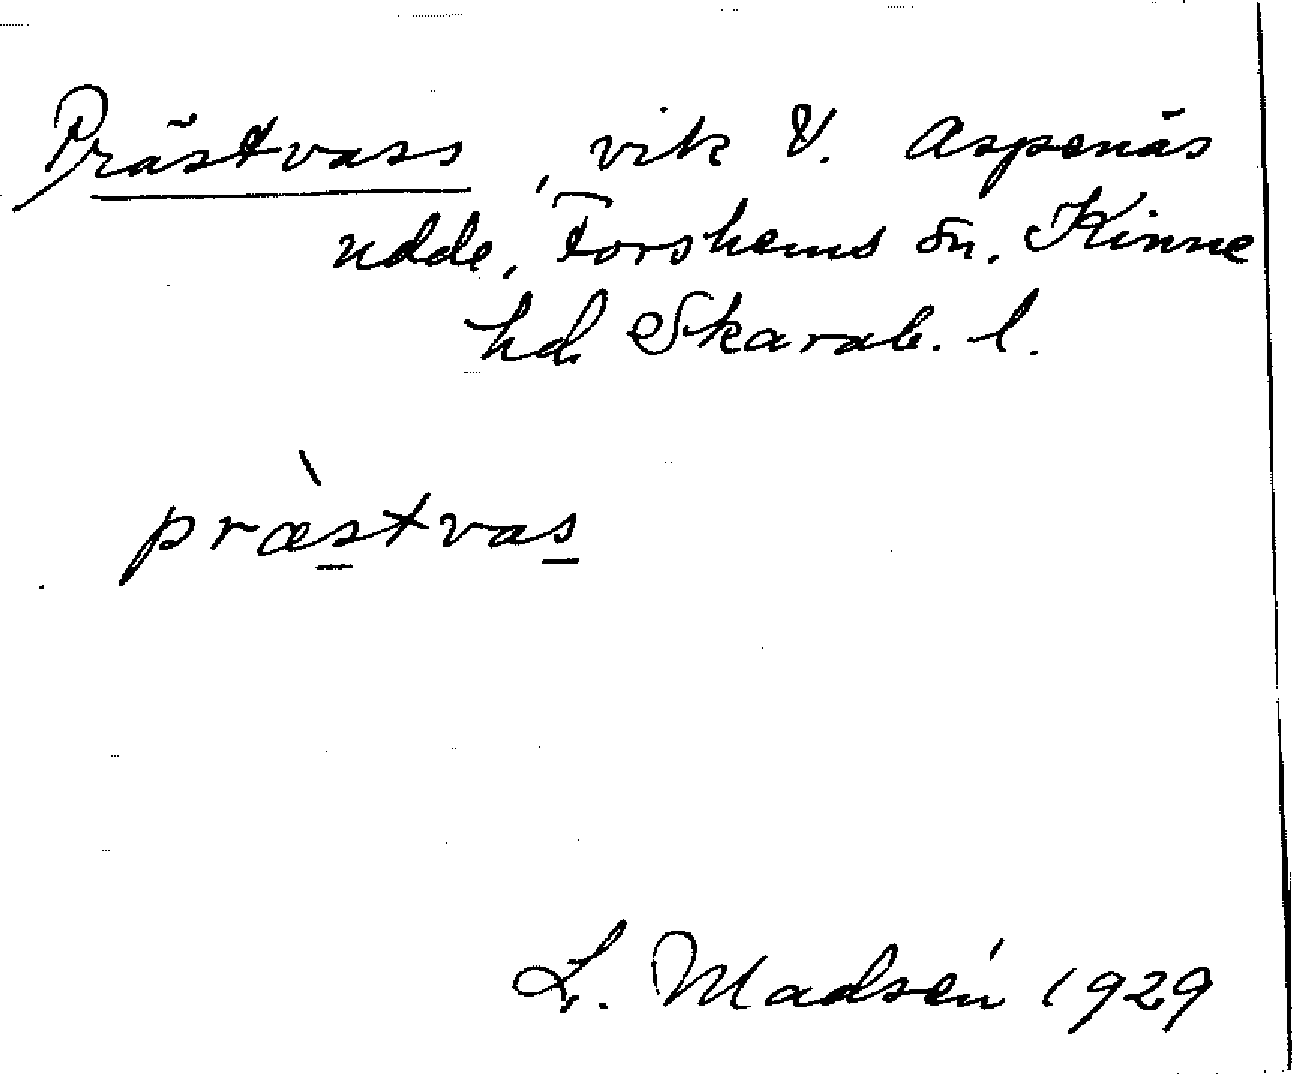 Prästvass, vik V. Aspenäs
udde, Forshems sn. Kinne
hd. Skarab. l.
præ̀stvas
L. Madsén 1929